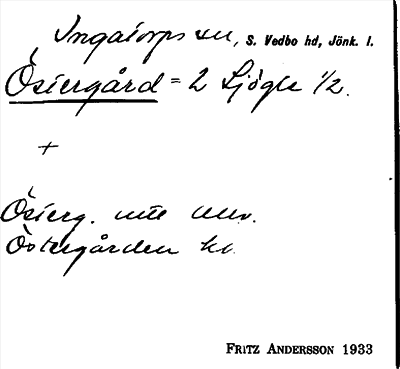 Ingatorps sn, S. Vedbo hd, Jönk. l.
Östergård = 2 Sjögle 1/2.
+
Österg.
Östergården
FRITZ ANDERSSON 1933